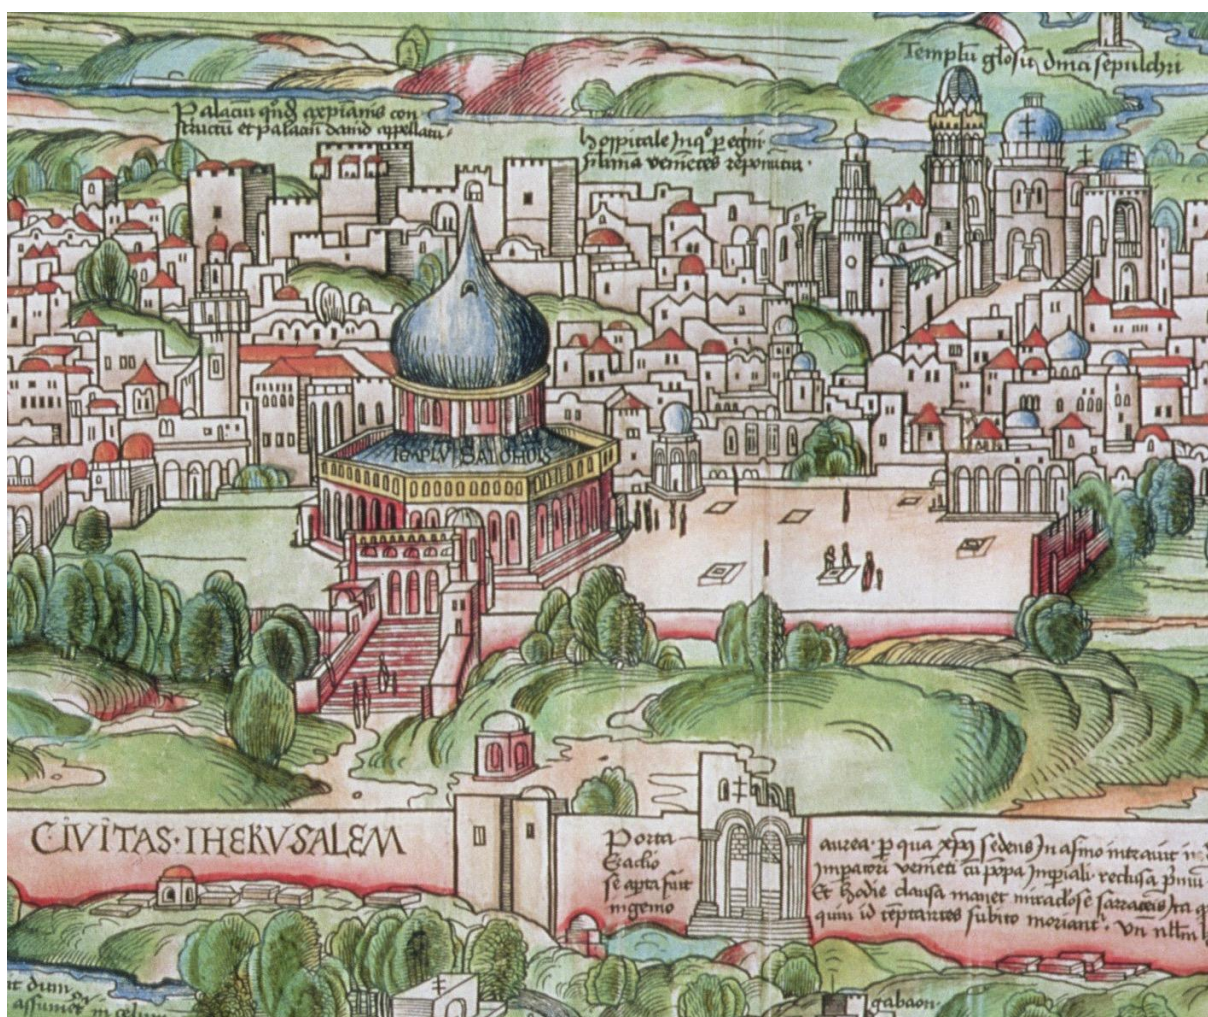 Templū glosū dnici sepulchri
Palaciū qd axpianis con
structū et palaciū david appellatū
hospitale Inqº pegrini
venietes reponuntur
TEMPLV SALOMOIS
CIVITAS·IHERVSALEM
Porta
se apta fuit
ingeno
aurea· p quā xps sedens In asino intravit
Impatori venieti cū popa Impiali· reclusa
Et hodie clausa manet miraclose sarraceis Ita
quiu id teptantes subito moriant'·
et dum
assumet in celum
gabaon·